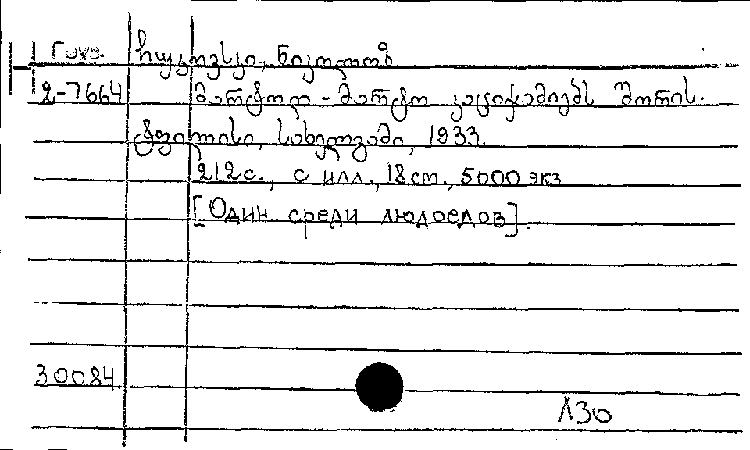 Груз. ჩუკოვსკი, ნიკოლოზ
2-7664 მარტოდ-მარტო კაციჭამიებს შორის.
ტფილისი, სახელგამი, 1933.
212 с., с илл., 18 см., 5000 экз
[Один среди людоедов].
30084
130